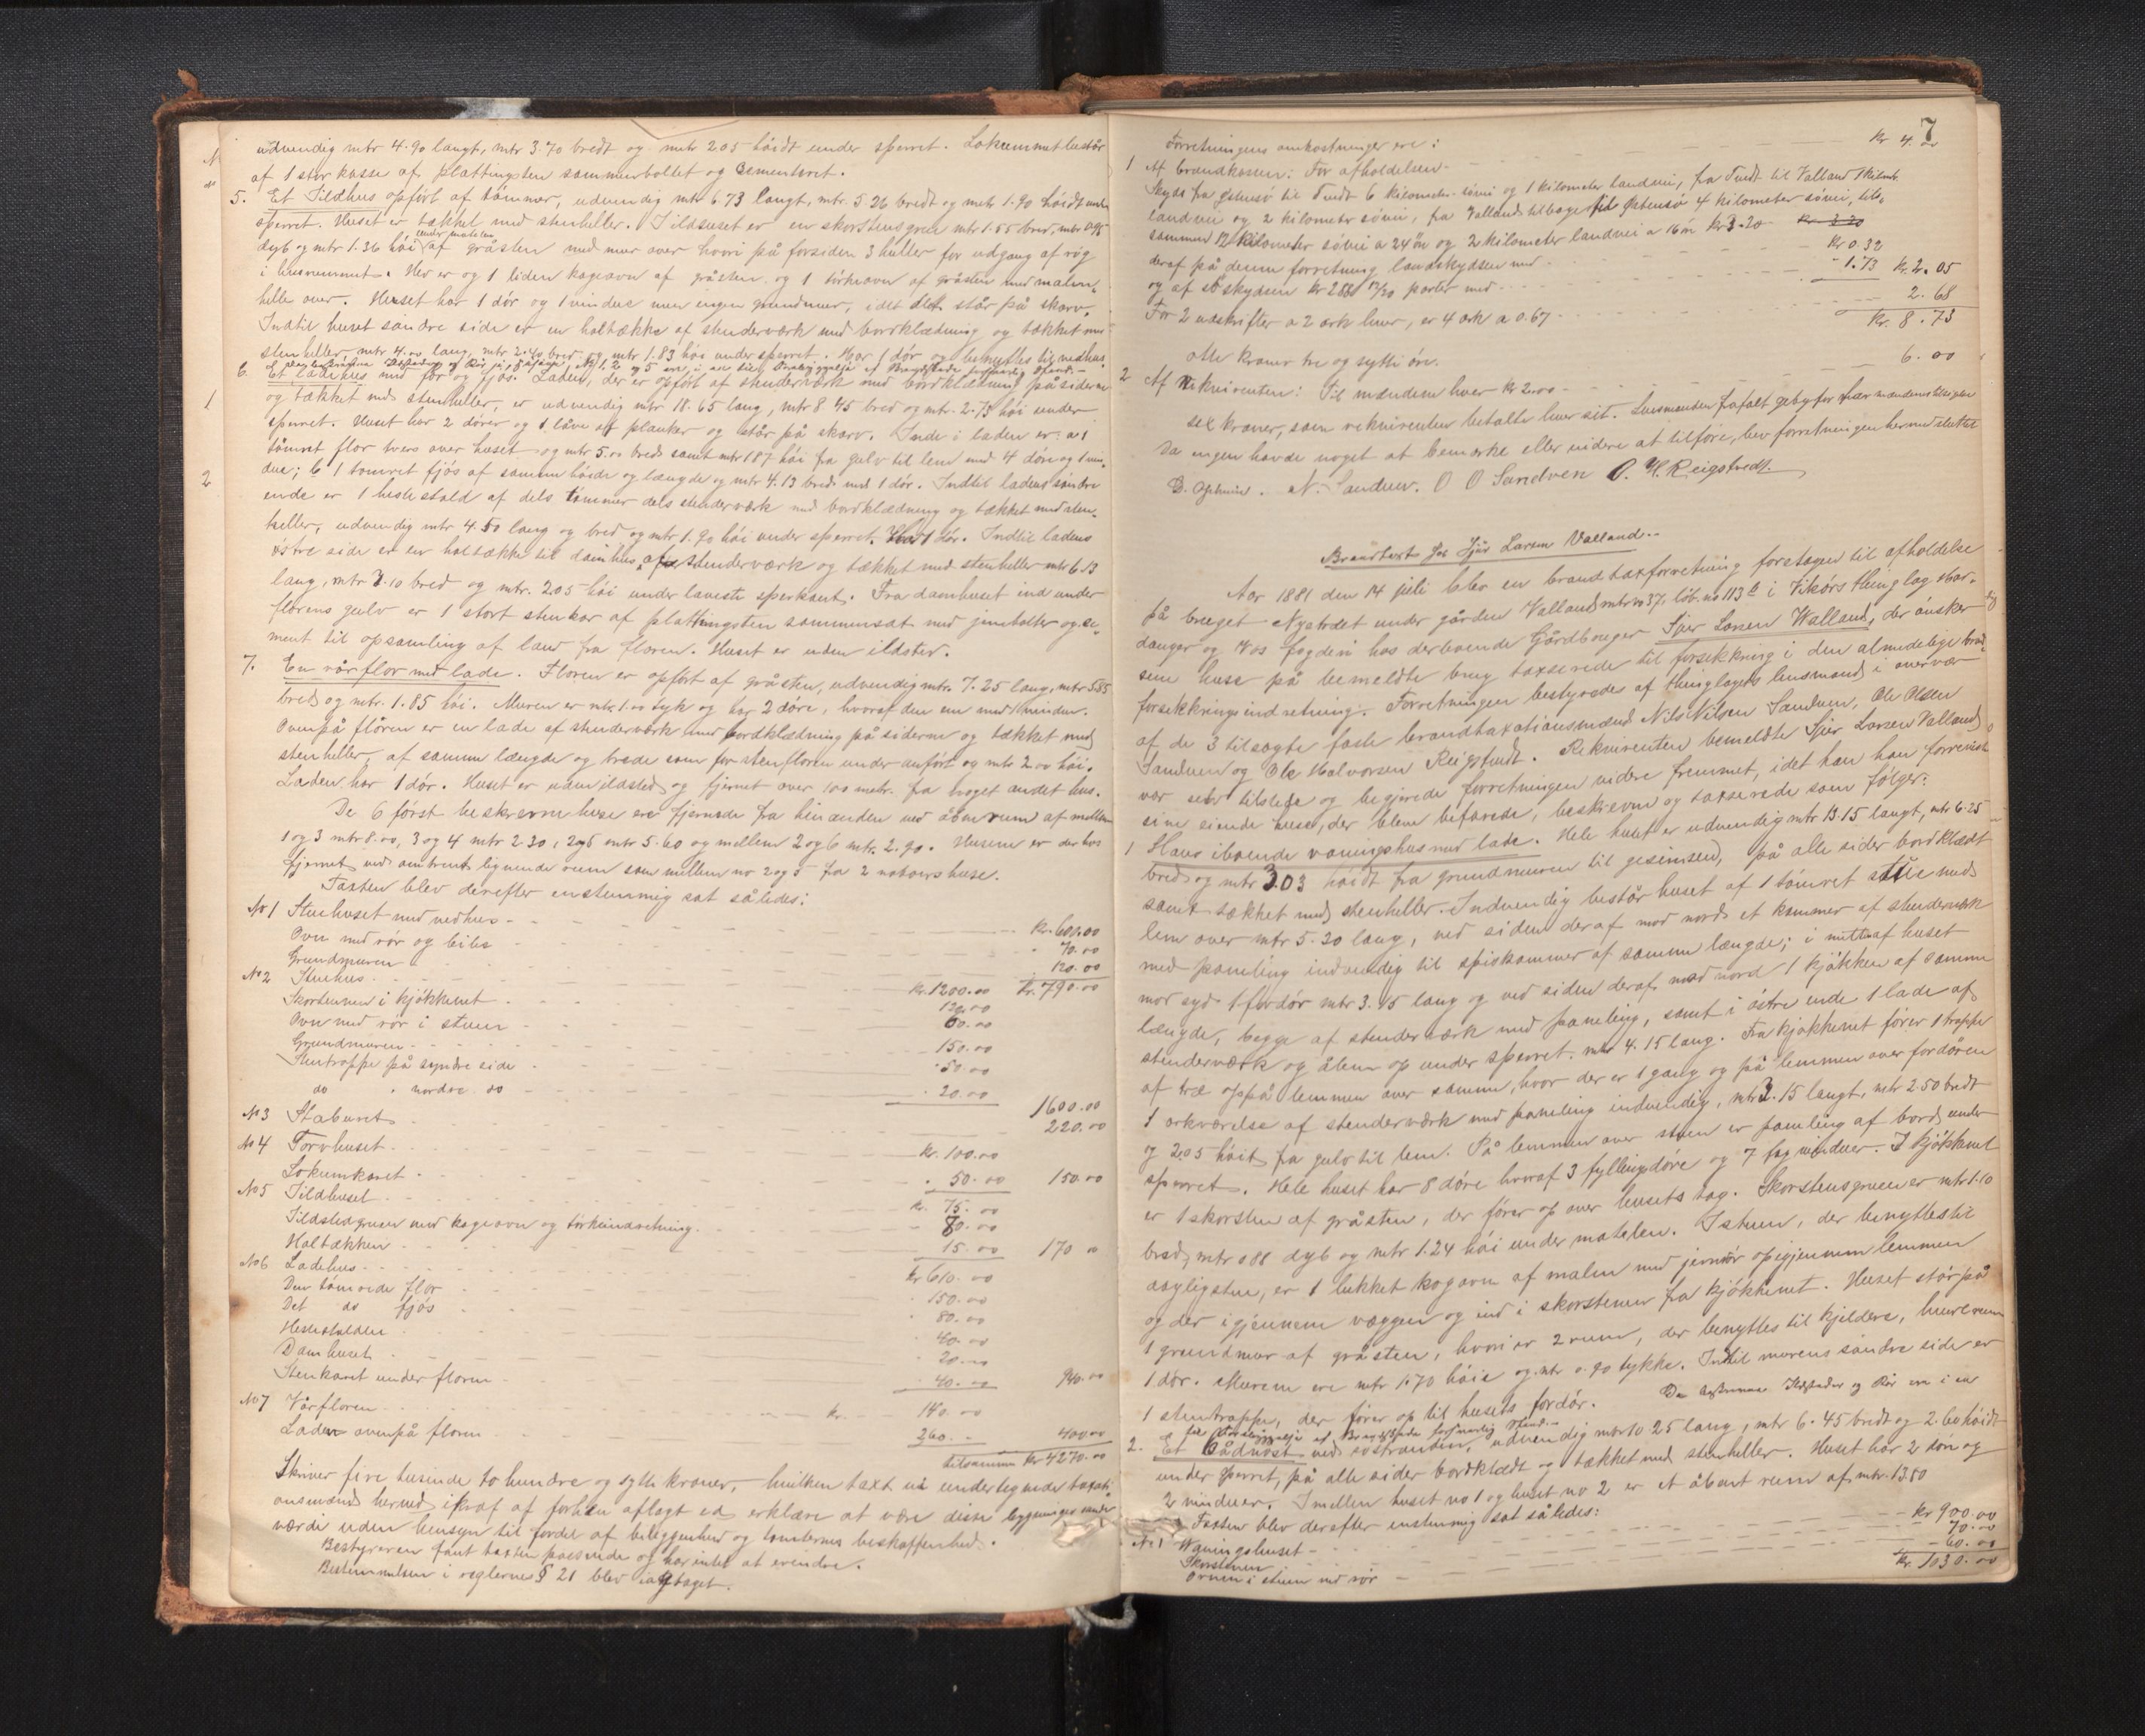 udvendig mtr 4.90 langt, mtr 3.70 bredt og mtr 2.05 höidt under sperret. Lokummet består
af 1 stor kasse af plattingsten sammenboltet og Cementeret.
5. Et Ildhus opfört af tömmer, udvendig mtr 6.73 langt, mtr. 5.26 bredt og mtr 1.90 höidt under
sperret. Huset er tækket med stenheller. I ildhuset er en skorstensgrue mtr 1.55 bred, mtr 0.95
dyb og mtr 1.36 höi under matelen af gråsten med mur over hvori på forsiden 3 huller for udgang af rög
i husrummet. Her er og 1 liden kageovn af gråsten og 1 törkeovn af gråsten med malm-
helle over. Huset har 1 dör og 1 vindue men ingen grundmur, idet det står på skarv.
Indtil huset söndre side er en haltække af stenderværk med bordklædning og tækket med
stenheller, mtr 4.00 lang, mtr 2.40 bred og mtr 1.83 höi under sperret. Har 1 dör og benyttes til vedhus.
6. Et ladehus med flor og fjös. Laden, der er opfört af stenderværk med bordklædning på siderne
og tækket med stenheller, er udvendig mtr 18.65 lang, mtr 8.45 bred og mtr. 2.73 höi under
sperret. Huset har 2 dörer og 1 låve af planker og står på skarv. Inde i laden er: a 1
tömret flor tvers over huset og mtr 5.00 bred samt mtr 1.87 höi fra gulv til lem med 4 döre og 1 vin-
due; b 1 tömret fjös af samme höide og længde og mtr 4.13 bred med 1 dör. Indtil ladens söndre
ende er 1 hestestald af dels tömmer dels stenderværk med bordklædning og tækket med sten-
heller, udvendig mtr 4.50 lang og bred og mtr 1.90 höi under sperret. Har 1 dör. Indtil ladens
östre side er en haltække til damhus, af stenderværk og tækket med stenheller mtr 6.13
lang, mtr 3.10 bred og mtr. 2.05 höi under laveste sperkant. Fra damhuset ind under
florens gulv er 1 stort stenkar af plattingsten sammensat med jernbolter og ce-
ment til opsamling af land fra floren. Huset er uden ildsted.
7. En vårflor med lade. Floren er opfört af gråsten, udvendig mtr. 7.25 lang, mtr 5.85
bred og mtr. 1.85 höi. Muren er mtr 1.00 tyk og har 2 döre, hvoraf den ene med 1 vindue.
Ovenpå flören er en lade af stenderværk med bordklædning på siderne og tækket med
stenheller, af samme længde og brede som for stenfloren under anfört og mtr 2.00 höi.
Laden har 1 dör. Huset er uden ildsted og fjernet over 100 metr. fra noget andet hus.
De 6 först beskrevne huse ere fjernede fra hinanden ved åbenrum af mellem
1 og 3 mtr 8.00, 3 og 4 mtr 2.30, 2 og 5 mtr 5.60 og mellem 2 og 6 mtr. 2.90. Husene er derhos
fjernet ved omtrent lignende rum som mellem no 2 og 5 fra 2 naboers huse.
Taxten blev derefter enstemmig sat således:
No 1 Stuehuset med vedhus - Kr. 600.00
Ovn med rör og bilex - 70.00
Grundmuren - 120.00
Kr. 790.00
No 2 Stuehus - Kr. 1200.00
Skorstenen i kjökkenet - 120.00
Ovn med rör i stuen - 60.00
Grundmuren - 150.00
Stentrappe på syndre side - 50.00
do nordre do - 20.00
1600.00
No 3 Staburet - 220.00
No 4 Torvhuset - Kr. 100.00
Lokumkaret - 50.00 150.00
No 5 Ildhuset - Kr. 75.00
Ildstedgruen med kageovn og törkeindretning - 80.00
Haltækken - 15.00 170.00
No 6 Ladehus - Kr 610.00
Den tömrede flor - 150.00
Det do fjös - 80.00
Hestestalden - 40.00
Damhuset - 20.00
Stenkaret under floren - 40.00 940.00
No 7 Vårfloren - Kr. 140.00
Laden ovenpå floren - 260.- 400.00
tilsammen Kr 4270.00
Skriver fire tusinde to hundre og sytti kroner, hvilken taxt vi undertegnede taxati-
onsmænd herved ikraf af forhen aflagt ed erklære at være disse bygninger sande
værdi uden hensyn til fordel af beliggenhed og tomternes beskaffenhed.
Bestyreren fant taxten passende og har intet at erindre.
Bestemmelsen i reglernes § 21 blev iagttaget.
7
Forretningens omkostninger ere:
1 Af brandkassen: For afholdelsen - Kr 4.00
Skyds fra Östensö til Tvedt 6 kilometer sövei og 1 kilometer landvei, fra Tvedt til Valland 1 kilmtr.
landvei og 2 kilometer sövei, fra Valland tilbage til Östensö 4 kilometer sövei, til-
sammen 12 kilometer sövei a 24 öre og 2 kilometer landvei a 16 öre Kr 3.20 Kr 3.20
deraf på denne forretning landskydsen med - Kr 0.32
og af söskydsen Kr 2.88 parter med - 1.73 Kr. 2.05
For 2 udskrifter a 2 ark hver, er 4 ark a 0.67 - 2.68
Kr. 8.73
otte kroner tre og sytti öre.
2 Af rekvirenten: Til mændene hver Kr 2.00 - 6.00
sex kroner, som rekvirenten betalte hver sit. Lensmanden frafalt gebyr for mændenes tilsigelse
Da ingen havde noget at bemærke eller videre at tilföre, blev forretningen hermed sluttet
N. Sandven. O O Sandven O. H. Reigstvedt.
Brandtaxt for Sjur Larsen Valland.
Aar 1881 den 14 juli blev en brandtaxtforretning foretagen til afholdelse
på bruget Nystödet under gården Valland mtr no 37, löb. no 113 b i Vikörs thinglag Har-
danger og Vos fogderi hos derboende Gårdbruger Sjur Larsen Walland, der önsker
sine huse på bemeldte brug taxserede til forsikkring i den almindelige brand-
forsikkringsindretning. Forretningen bestyredes af thinglagets lensmand i overvær
af de 3 tilsagte faste brandtaxationsmænd Nils Nilsen Sandven, Ole Olsen
Sandven og Ole Halvorsen Reigstvedt. Rekvirenten bemeldte Sjur Larsen Valland
var selv tilstede og begjærede forretningen videre fremmet, idet han han foreviste
sine eiende huse, der bleve befarede, beskrevne og taxserede som fölger:
1 Hans iboende vaaningshus med lade. Hele huset er udvendig mtr 13.15 langt, mtr 6.25
bred og mtr 3.03 höidt fra grundmuren til gesimsen, på alle sider bordklædt
samt tækket med stenheller. Indvendig består huset af 1 tömret stue med
lem over mtr 5.20 lang, ved siden deraf mod nord et kammer af stenderværk
med paneling indvendig til spiskammer af samme længde; i midten af huset
mod syd 1 fordör mtr 3.15 lang og ved siden deraf mod nord 1 kjökken af samme
længde, begge af stenderværk med paneling, samt i östre ende 1 lade af
stenderværk og åben op under sperret, mtr 4.15 lang. Fra kjökkenet förer 1 trappe
af træ oppå lemmen over samme, hvor der er 1 gang og på lemmen over fordören
1 arkværelse af stenderværk med paneling indvendig, mtr 3.15 langt, mtr 2.50 bredt
og 2.05 höit fra gulv til lem. På lemmen over stuen er paneling af bord under
sperret. Hele huset har 8 döre hvoraf 3 fyllingsdöre og 7 fag vinduer. I kjökkenet
er 1 skorsten af gråsten, der förer op over husets tag. Skorstensgruen er mtr 1.10
bred, mtr 0.88 dyb og mtr 1.24 höi under matelen. I stuen, der benyttes til
daglistue, er 1 lukket kogovn af malm med jernrör op igjennem lemmen
og der igjennem væggen og ind i skorstenen fra kjökkenet. Huset står på
1 grundmur af gråsten, hvori er 2 rum, der benyttes til kjeldere, hvert rum
1 dör. Murene ere mtr 1.70 höie og mtr 0.90 tykke. Indtil murens söndre side er
1 stentrappe, der förer op til husets fordör. De beskrevne Ildsteder og Rör ere i en
til Forebyggelse af Brandskade forsvarlig Stand.-
2. Et Bådnöst ved söstranden, udvendig mtr 10.25 lang, mtr 6.45 bredt og 2.60 höidt
under sperret, på alle sider bordklædt og tækket med stenheller. Huset har 2 döre og
2 vinduer. Imellem huset no 1 og huset no 2 er et åbent rum af mtr. 13.50
Taxten blev derefter enstemmig sat således:
No 1 Waningshuset - Kr 900.00
Skorstenen - 70.00
Ovnen i stuen med rör - 60.00
Kr. 1030.00